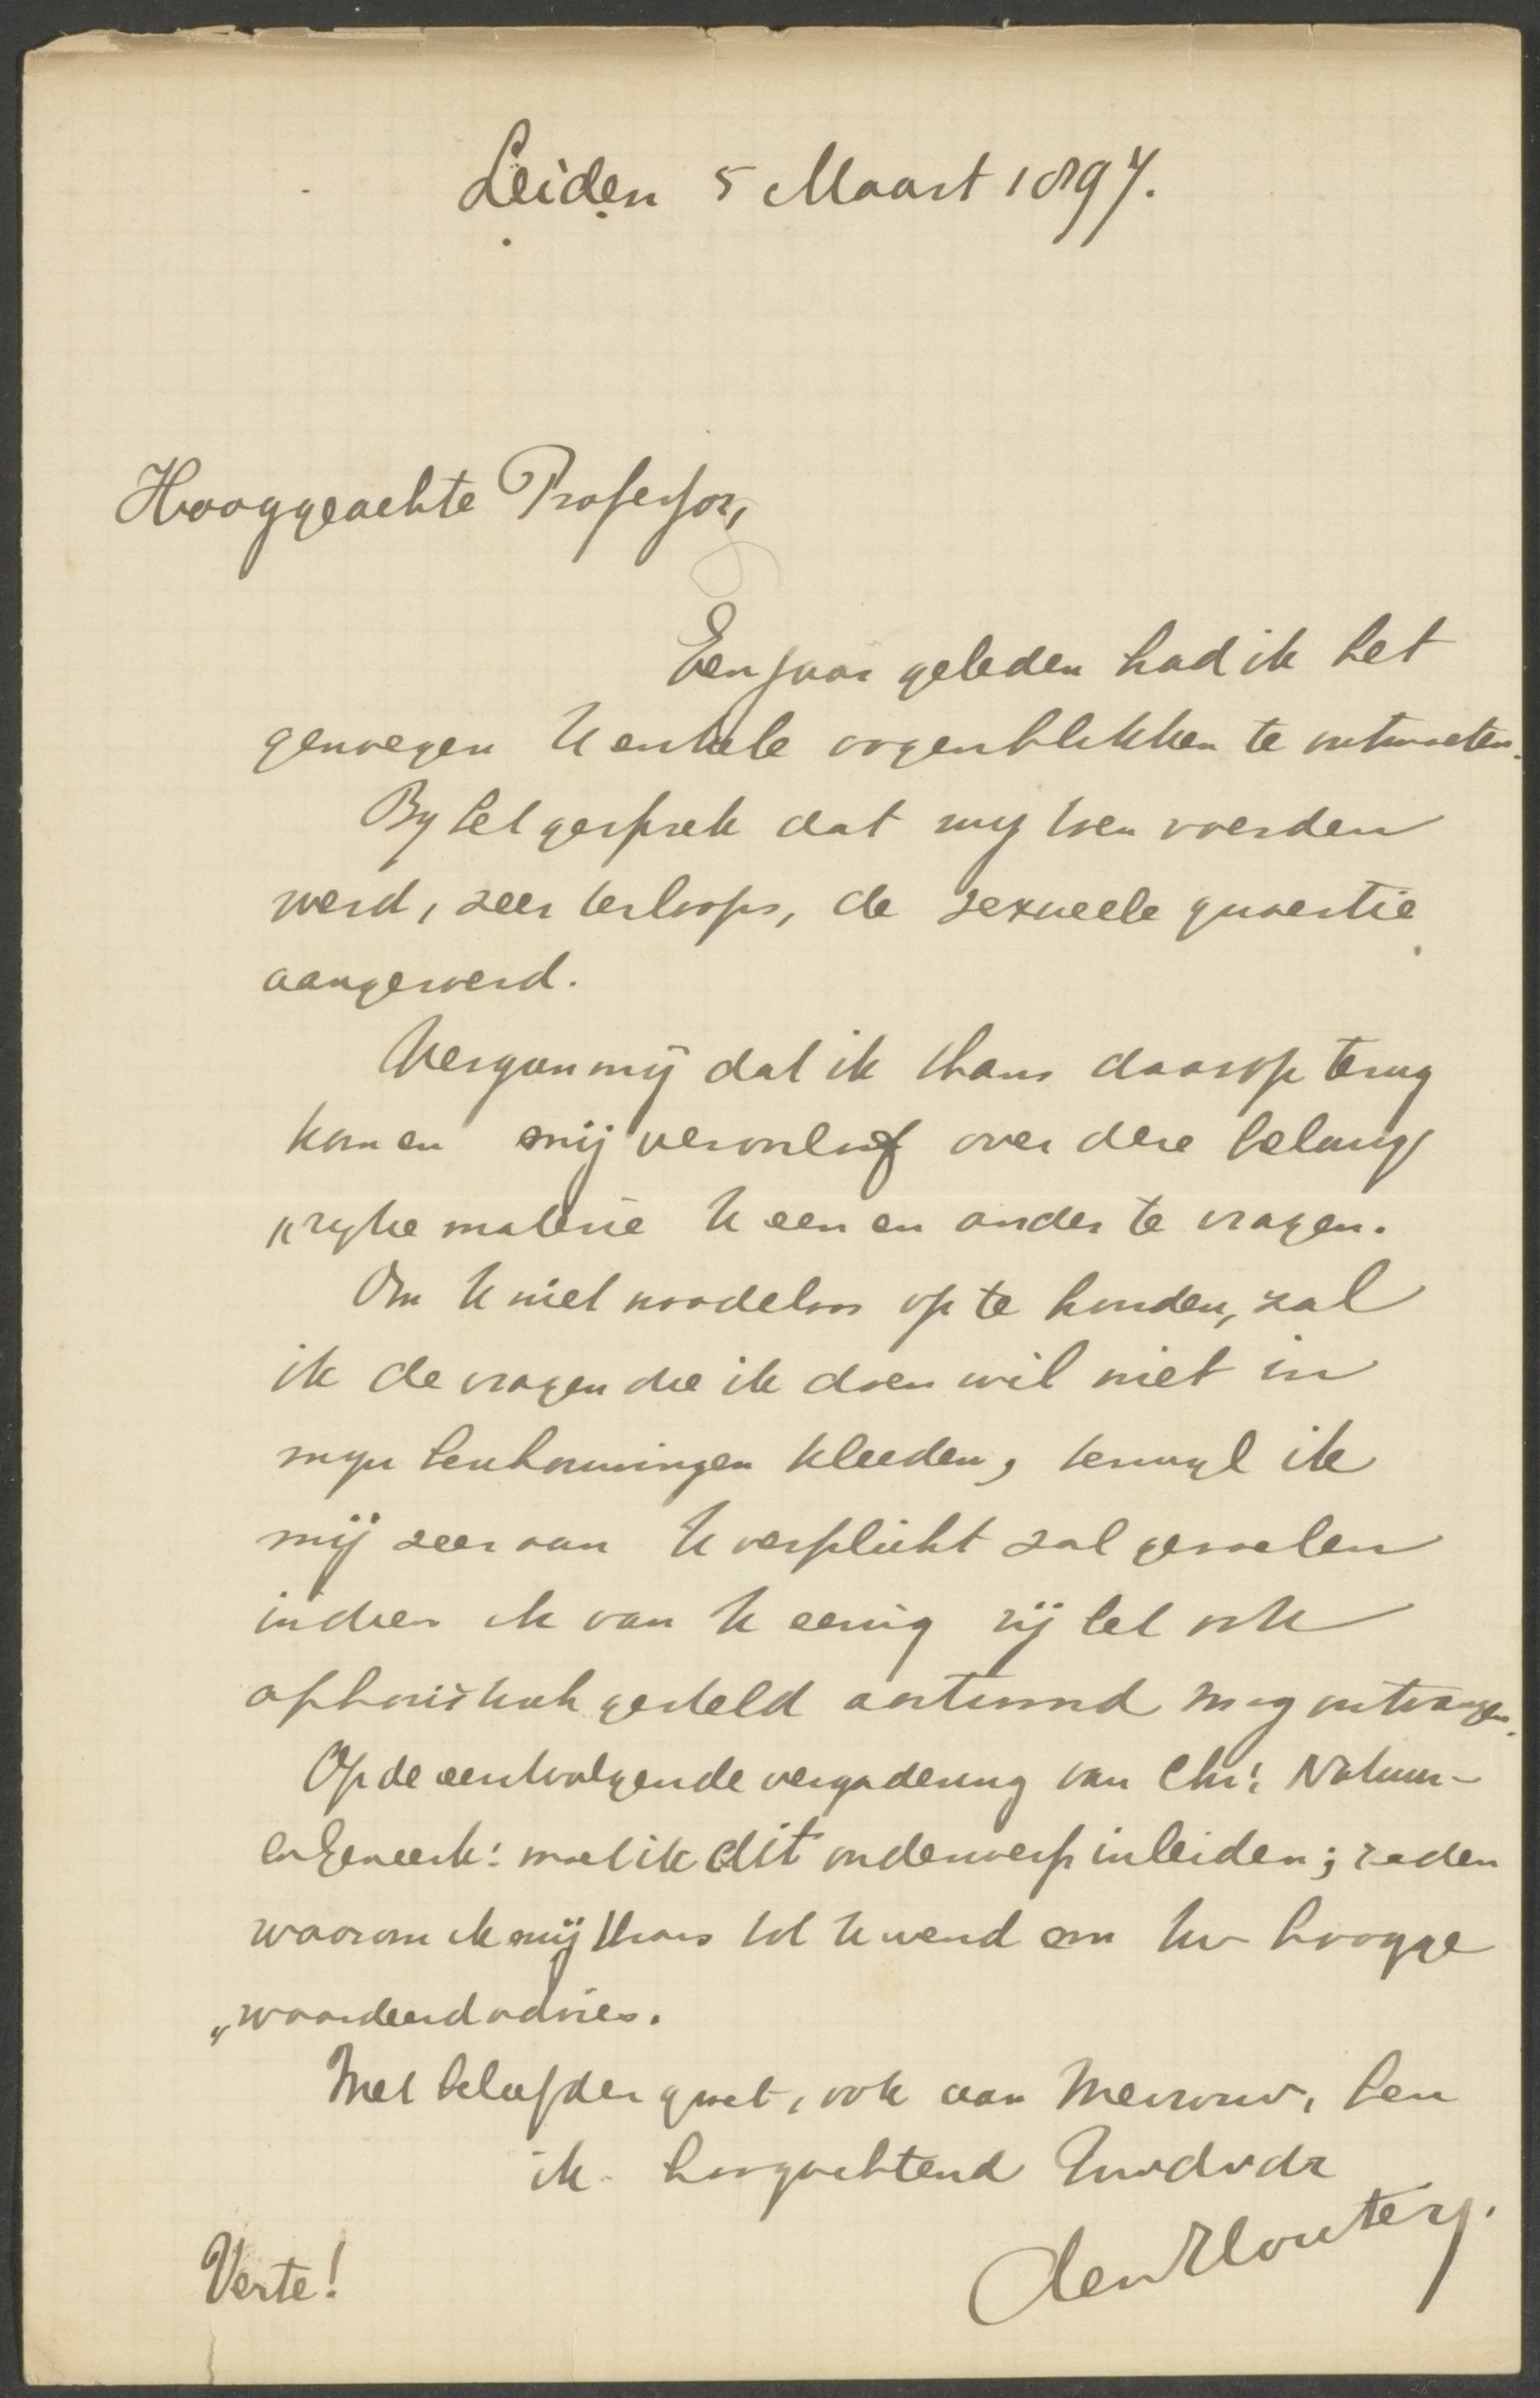 Leiden 5 Maart 1897.
Hooggeachte Professor,
Een jaar geleden had ik het
genoegen U enkele oogenblikken te ontmoeten.
By het gesprek dat wy toen voerden
werd, zeer terloops, de sexueele quaestie
aangeroerd.
Vergun mij dat ik thans daarop terug
kom en mij veroorloof over deze belang
„ryke materie U een en ander te vragen.
Om U niet noodeloos op te houden, zal
ik de vragen die ik doen wil niet in
myn beschouwingen kleeden, terwyl ik
mij zeer aan U verplicht zal gevoelen
indien ik van U eenig zij het ook
aphoristisch gesteld antwoord mag ontvangen.
Op de eerstvolgende vergadering van Chr: Natuur-
en Geneesk: moet ik dit onderwerp inleiden; reden
waarom ik mij thans tot U wend om Uw hoogge
„waardeerd advies.
Met beleefden groet, ook aan Mevrouw, ben
ik hoogachtend Uwdwdr
Verte!